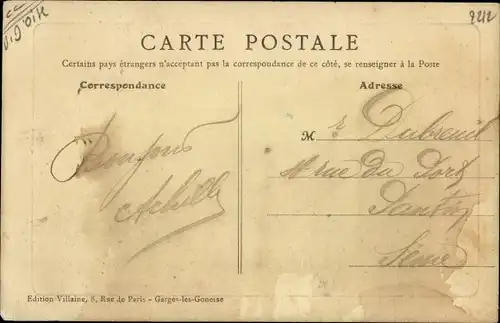 9212
CARTE POSTALE
Certains pays étrangers n'acceptant pas la correspondance de ce côté, se renseigner à la Poste
Correspondance
Adresse
Bonjour
Achille
M r Dubreuil
rue du Port
Pantin
Seine
Edition Villaine, 8, Rue de Paris - Garges-les-Gonesse